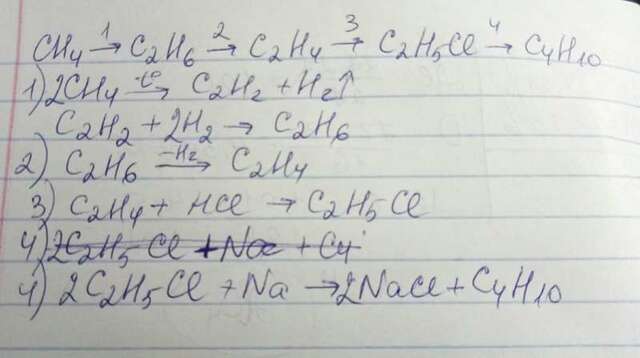 CH4 →1 C2H6 →2 C2H4 →3 C2H5Cl →4 C4H10
1) 2CH4 —t°→ C2H2 + H2↑
C2H2 + 2H2 → C2H6
2) C2H6 —-H2→ C2H4
3) C2H4 + HCl → C2H5Cl
4) 2C2H5Cl + Na + C4
4) 2C2H5Cl + Na → 2NaCl + C4H10